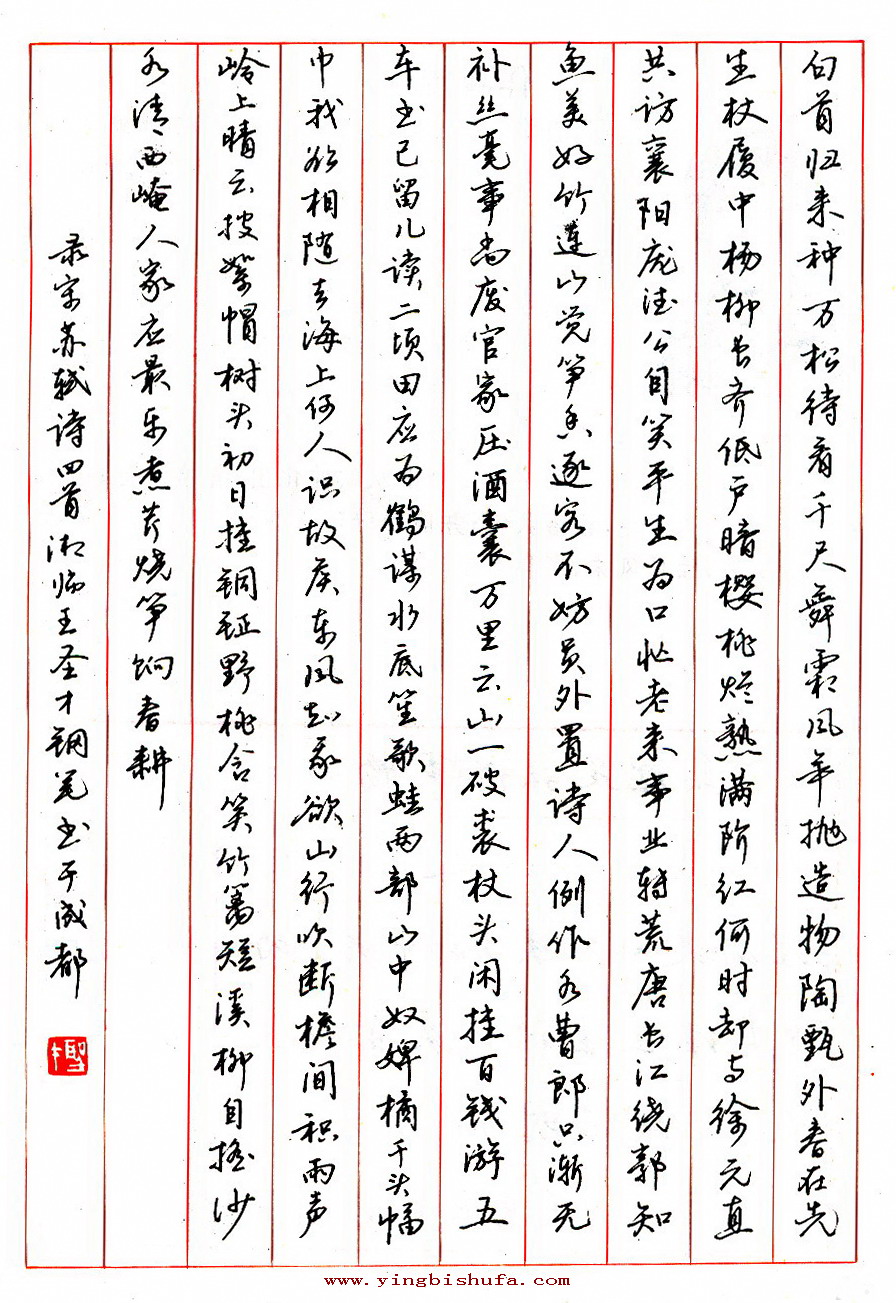 白首归来种万松待看千尺舞霜风年抛造物陶甄外春在先
生杖履中杨柳长齐低户暗樱桃烂熟满阶红何时却与徐元直
共访襄阳庞德公自笑平生为口忙老来事业转荒唐长江绕郭知
鱼美好竹连山觉笋香逐客不妨员外置诗人例作水曹郎只渐无
补丝毫事尚废官家压酒囊万里云山一破裘杖头闲挂百钱游五
车书已留儿读二顷田应为鹤谋水底笙歌蛙两部山中奴婢橘千头幅
巾我欲相随去海上何人识故侯东风知我欲山行吹断檐间积雨声
岭上晴云披絮帽树头初日挂铜钲野桃含笑竹篱短溪柳自摇沙
水清西崦人家应最乐煮芹烧笋饷春耕
录宋苏轼诗四首湘临王圣才钢笔书于成都
聖才
www.yingbishufa.com